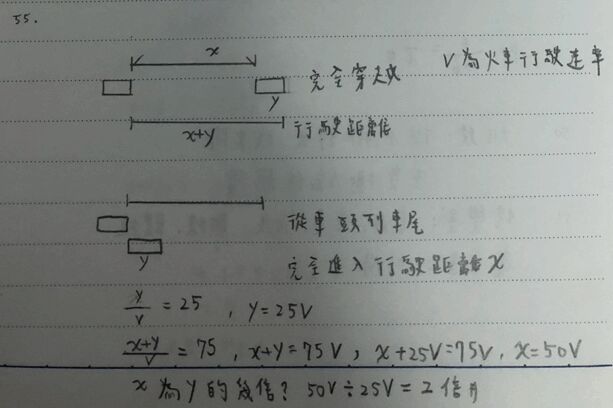 55.
x
完全穿越 V為火車行駛速率
y
x+y 行駛距離
從車頭到車尾
y 完全進入行駛距離x
y/V = 25 , y=25V
x+y/V = 75 , x+y=75V , x+25V=75V , x=50V
x為y的幾倍? 50V÷25V=2倍